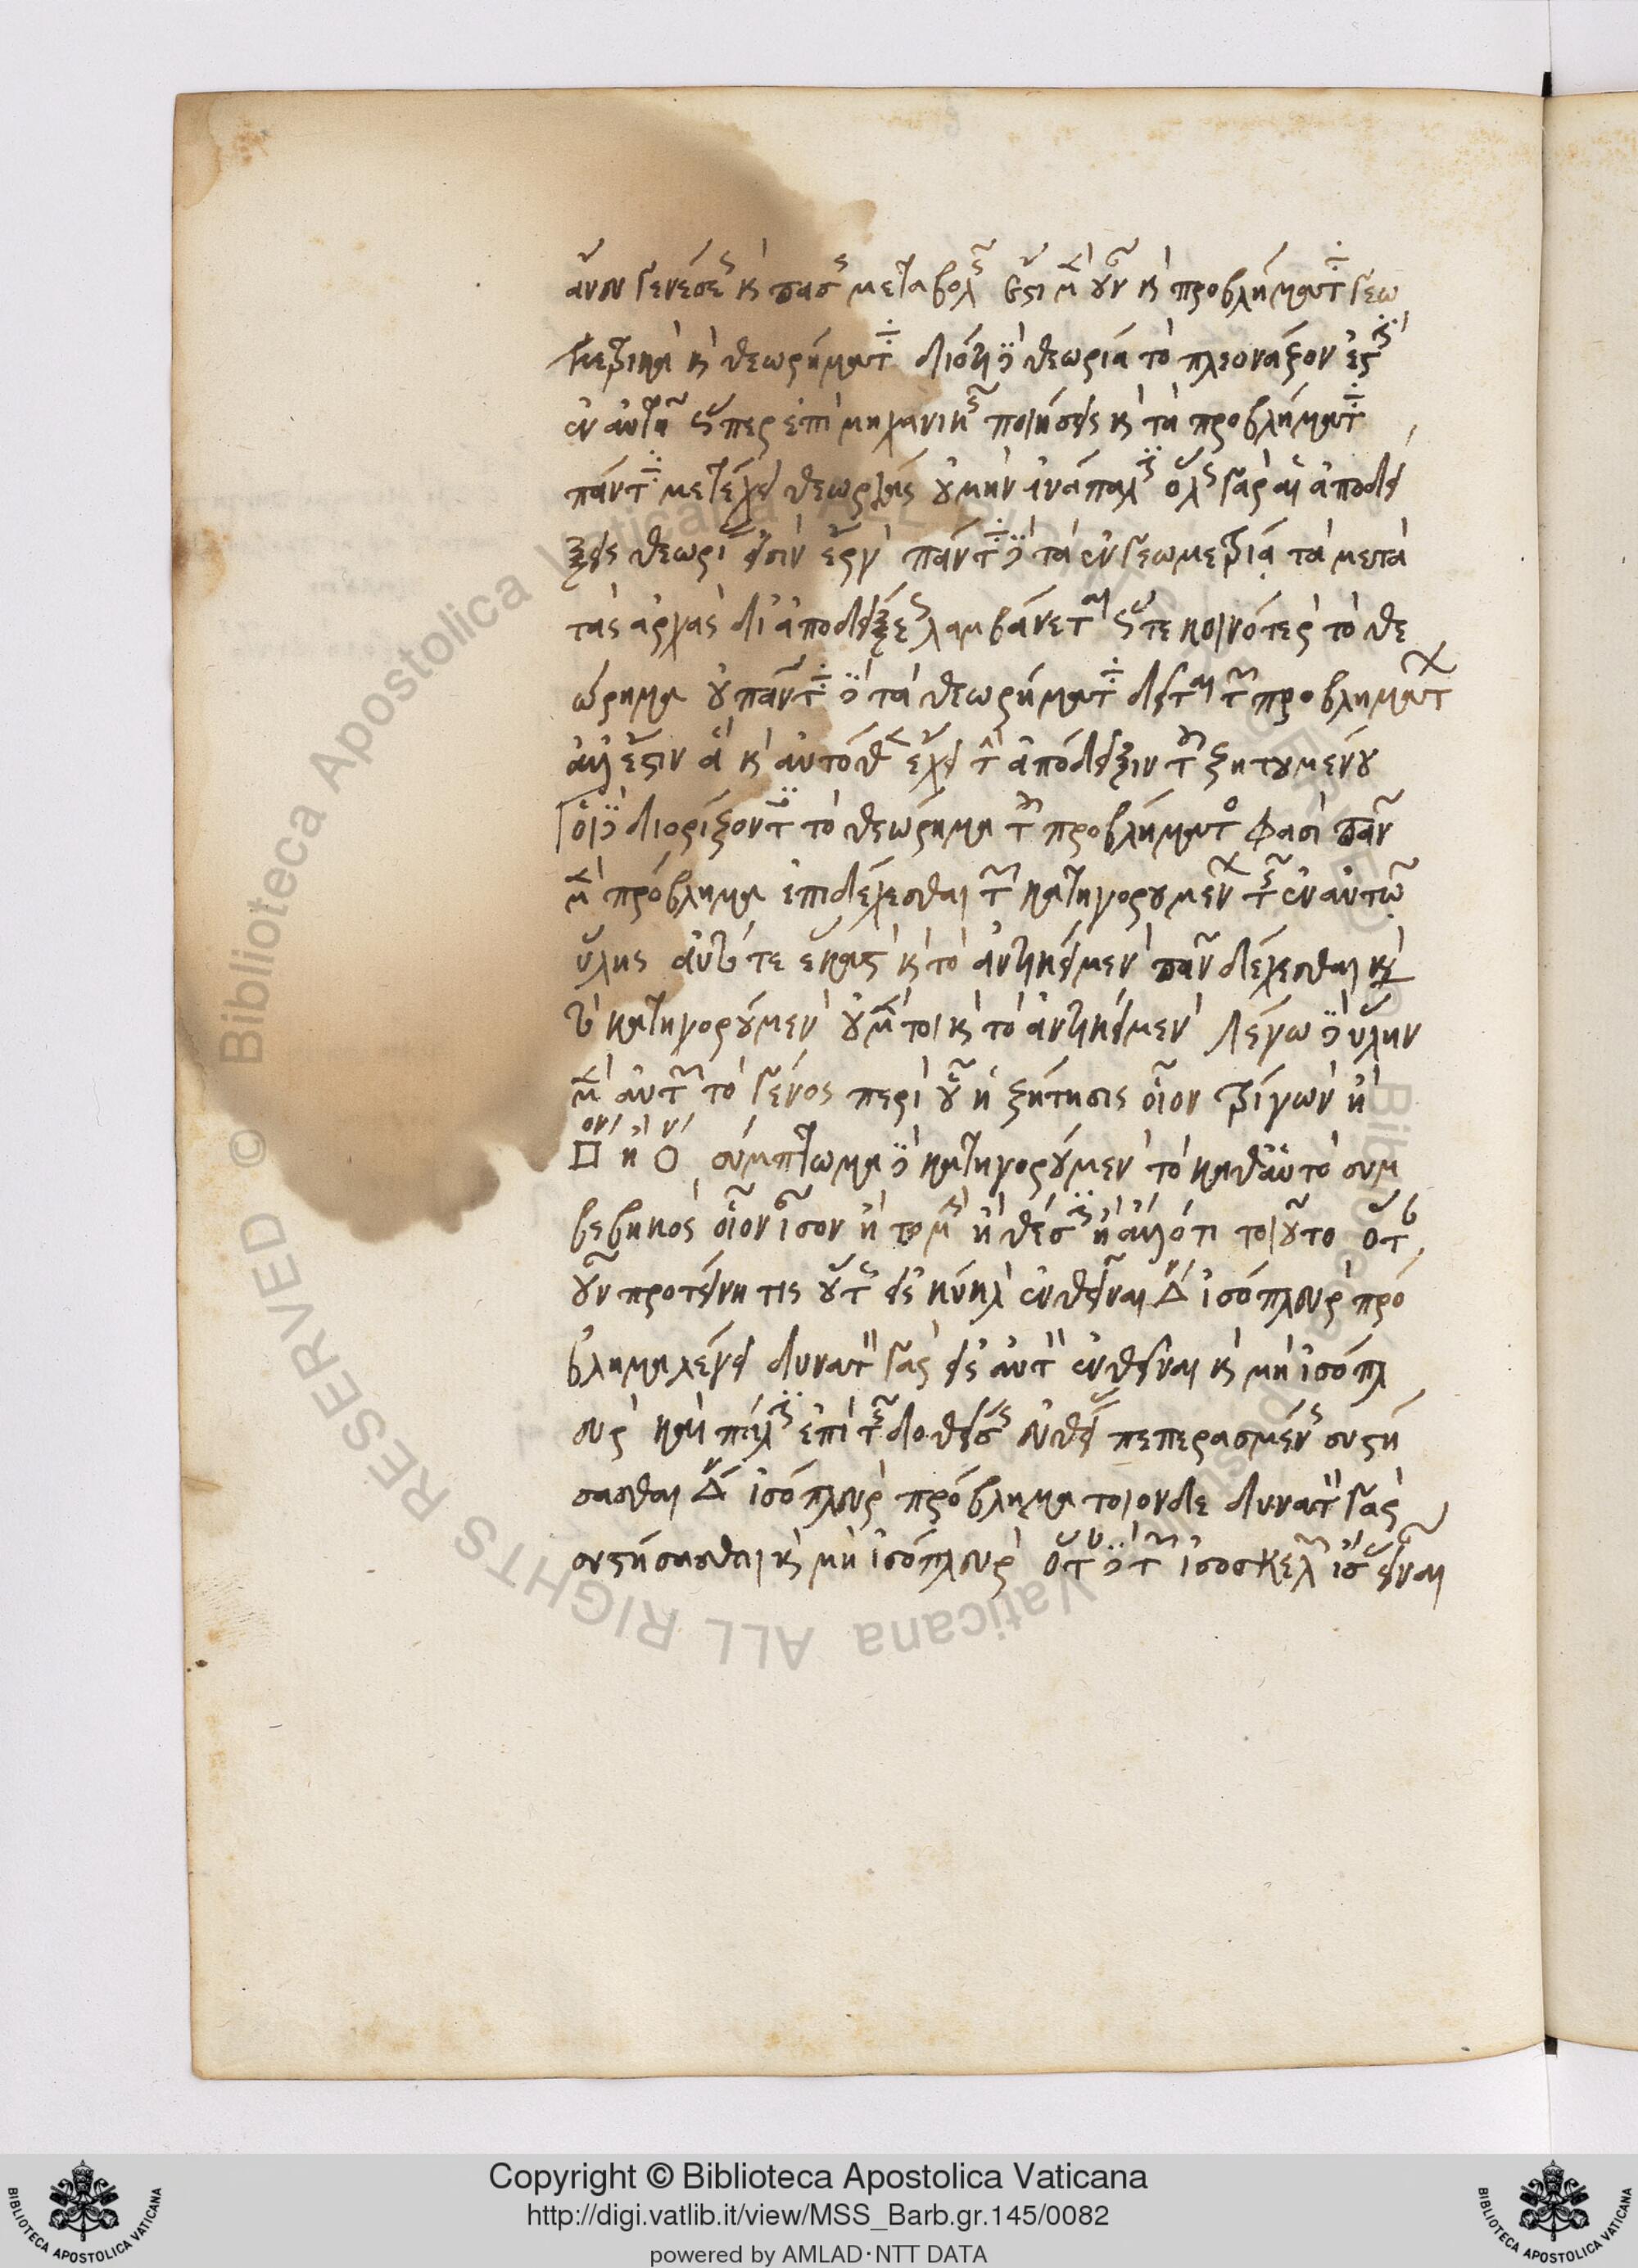 ἄνευ γενέσεως καὶ πάσης μεταβολῆς ἔστι μὲν οὖν καὶ προβλήματα γεω
μετρικὰ καὶ θεωρήματα διότι δὲ θεωρία τὸ πλεονάζον ἐστὶν
ἐν αὐτῇ ὥσπερ ἐπὶ μηχανικῆς ποιήσεις καὶ τὰ προβλήματα
πάντα μετέχει θεωρίας οὐ μὴν ἀνάπαλιν ὅλως γὰρ αἱ ἀποδεί
ξεις θεωρίας εἰσὶν ἔργον πάντα δὲ τὰ ἐν γεωμετρίᾳ τὰ μετὰ
τὰς ἀρχὰς δι' ἀποδείξεως λαμβάνεται ὥστε κοινότερον τὸ θε
ώρημα οὐ πάντα δὲ τὰ θεωρήματα δεῖται τῶν προβλημάτων
ἀλλ' ἔστιν ἃ καὶ αὐτόθεν ἔχει τὴν ἀπόδειξιν τοῦ ζητουμένου
οἱ δὲ διορίζοντες τὸ θεώρημα τοῦ προβλήματος φασὶ πᾶν
μὲν πρόβλημα ἐπιδέχεσθαι τῶν κατηγορουμένων τῆς ἐν αὐτῷ
ὕλης αὐτό τε ἕκαστον καὶ τὸ ἀντικείμενον πᾶν δέχεσθαι κατὰ
τὸ κατηγορούμενον οὐ μέντοι καὶ τὸ ἀντικείμενον λέγω δὲ ὕλην
μὲν αὐτῶν τὸ γένος περὶ οὗ ἡ ζήτησις οἷον τρίγωνον ἢ
□ον ἢ Ο, σύμπτωμα δὲ κατηγορούμενον τὸ καθ' αὑτὸ συμ
βεβηκὸς οἷον ἴσον ἢ τομὴν ἢ θέσιν ἢ ἄλλό τι τοιοῦτο ὅταν
οὖν προτείνῃ τις οὕτως εἰς κύκλον ἐνθεῖναι Δ ἰσόπλευρον πρό
βλημα λέγει δυνατὸν γὰρ εἰς αὐτὸν ἐνθεῖναι καὶ μὴ ἰσόπλ
ευρον καὶ πάλιν ἐπὶ τῆς δοθείσης εὐθείας πεπερασμένης συστή
σασθαι Δ ἰσόπλευρον πρόβλημα τοιόνδε δυνατὸν γὰρ
συστήσασθαι καὶ μὴ ἰσόπλευρον ὅταν δὲ τῶν ἰσοσκελῶν ἴσας εἶναι
Copyright © Biblioteca Apostolica Vaticana
http://digi.vatlib.it/view/MSS_Barb.gr.145/0082
powered by AMLAD·NTT DATA